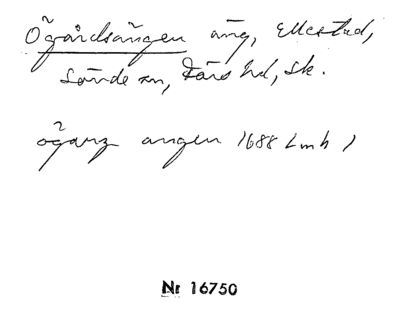 Ögårdsängen äng, Ellestad,
Sönde sn, Färs hd, Sk.
ögarz angen 1688 Lmh 1
Nr 16750